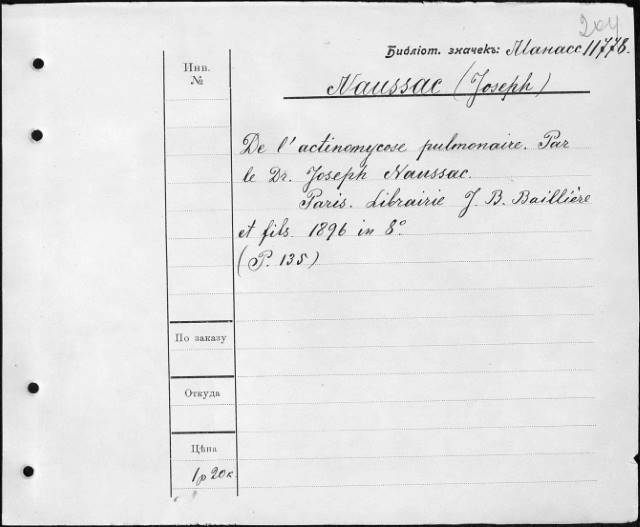 204
Библіот. значекъ: Манасс 11778.
Инв.
№
Naussac (Joseph)
De l'actinomycose pulmonaire. Par
le Dr. Joseph Naussac.
Paris. Librairie J. B. Baillière
et fils. 1896 in 8°
(P. 135)
По заказу
Откуда
Цѣна
1р 20к.